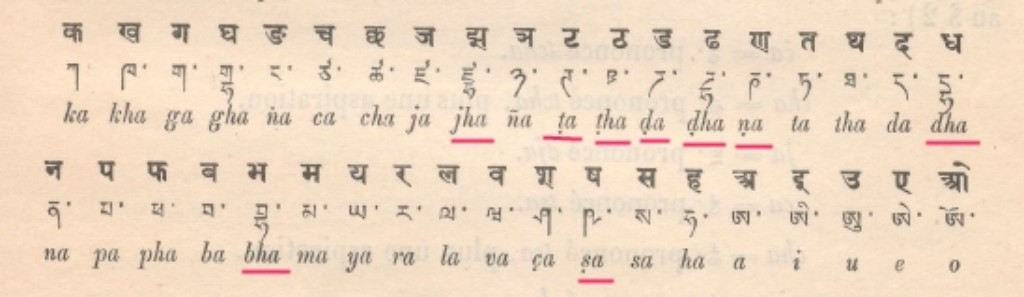 क ख ग घ ङ च छ ज झ ञ ट ठ ड ढ ण त थ द ध
ཀ་ ཁ་ ག་ གྷ་ ང་ ཙ་ ཚ་ ཛ་ ཛྷ་ ཉ་ ཊ་ ཋ་ ཌ་ ཌྷ་ ཎ་ ཏ་ ཐ་ ད་ དྷ་
ka kha ga gha ṅa ca cha ja jha ña ṭa ṭha ḍa ḍha ṇa ta tha da dha
न प फ ब भ म य र ल व श ष स ह अ इ उ ए ओ
ན་ པ་ ཕ་ བ་ བྷ་ མ་ ཡ་ ར་ ལ་ ཝ་ ཤ་ ཥ་ ས་ ཧ་ ཨ་ ཨི་ ཨུ་ ཨེ་ ཨོ་
na pa pha ba bha ma ya ra la va ça ṣa sa ha a i u e o